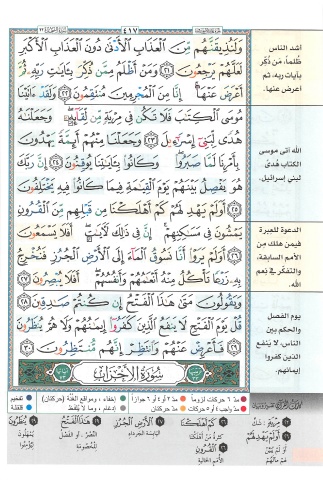 ٤١٧
وَلَنُذِيقَنَّهُم مِّنَ ٱلْعَذَابِ ٱلْأَدْنَىٰ دُونَ ٱلْعَذَابِ ٱلْأَكْبَرِ
لَعَلَّهُمْ يَرْجِعُونَ ٢١ وَمَنْ أَظْلَمُ مِمَّن ذُكِّرَ بِـَٔايَٰتِ رَبِّهِۦ ثُمَّ
أَعْرَضَ عَنْهَآ إِنَّا مِنَ ٱلْمُجْرِمِينَ مُنتَقِمُونَ ٢٢ وَلَقَدْ ءَاتَيْنَا
مُوسَى ٱلْكِتَٰبَ فَلَا تَكُن فِى مِرْيَةٍ مِّن لِّقَآئِهِۦ وَجَعَلْنَٰهُ
هُدًى لِّبَنِىٓ إِسْرَٰٓءِيلَ ٢٣ وَجَعَلْنَا مِنْهُمْ أَئِمَّةً يَهْدُونَ
بِأَمْرِنَا لَمَّا صَبَرُوا۟ وَكَانُوا۟ بِـَٔايَٰتِنَا يُوقِنُونَ ٢٤ إِنَّ رَبَّكَ
هُوَ يَفْصِلُ بَيْنَهُمْ يَوْمَ ٱلْقِيَٰمَةِ فِيمَا كَانُوا۟ فِيهِ يَخْتَلِفُونَ
٢٥ أَوَلَمْ يَهْدِ لَهُمْ كَمْ أَهْلَكْنَا مِن قَبْلِهِم مِّنَ ٱلْقُرُونِ
يَمْشُونَ فِى مَسَٰكِنِهِمْ إِنَّ فِى ذَٰلِكَ لَـَٔايَٰتٍ أَفَلَا يَسْمَعُونَ
٢٦ أَوَلَمْ يَرَوْا۟ أَنَّا نَسُوقُ ٱلْمَآءَ إِلَى ٱلْأَرْضِ ٱلْجُرُزِ فَنُخْرِجُ
بِهِۦ زَرْعًا تَأْكُلُ مِنْهُ أَنْعَٰمُهُمْ وَأَنفُسُهُمْ أَفَلَا يُبْصِرُونَ ٢٧
وَيَقُولُونَ مَتَىٰ هَٰذَا ٱلْفَتْحُ إِن كُنتُمْ صَٰدِقِينَ ٢٨
قُلْ يَوْمَ ٱلْفَتْحِ لَا يَنفَعُ ٱلَّذِينَ كَفَرُوٓا۟ إِيمَٰنُهُمْ وَلَا هُمْ يُنظَرُونَ
٢٩ فَأَعْرِضْ عَنْهُمْ وَٱنتَظِرْ إِنَّهُم مُّنتَظِرُونَ ٣٠
سُورَةُ الأَحْزَابِ
أشد الناس
ظلماً، مَن ذُكِّر
بآيات ربه، ثم
أعرض عنها.
الله آتى موسى
الكتاب هُدىً
لبني إسرائيل.
الدعوة للعبرة
فيمن هلك من
الأمم السابقة،
والتفكر في نِعم
الله.
يوم الفصل
والحكم بين
الناس، لا ينفع
الذين كفروا
إيمانهم.
مدّ ٦ حركات لزوماً
مدّ ٢ أو ٤ أو ٦ جوازاً
إخفاء، ومواقع الغُنَّة (حركتان)
تفخيم
مدّ واجب ٤ أو ٥ حركات
مدّ حركتان
إدغام، وما لا يُلفظ
قلقلة